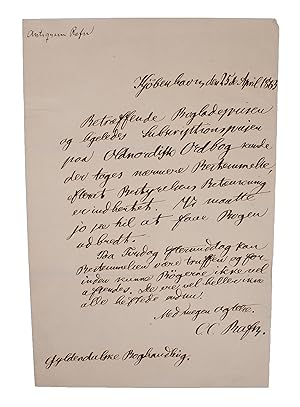 Antiquarer Rafn
Kjöbenhavn, den 25de April 1863
Betræffende Bogladeprisen
og ligeledes Subskriptionsprisen
paa Oldnordisk Ordbog kunde
der tages nærmere Bestemmelse,
efterat Bestyrelsens Betænkning
er indhentet. Vi maatte
jo se til at faae Bogen
udbredt.
Paa Tirsdag Eftermiddag kan
Bestemmelsen være truffen og for-
inden kunne Bögerne ikke vel
afsendes. De ere vel heller
alle heftede
Med megen Agtelse.
C C Rafn.
Gyldendalske Boghandling.